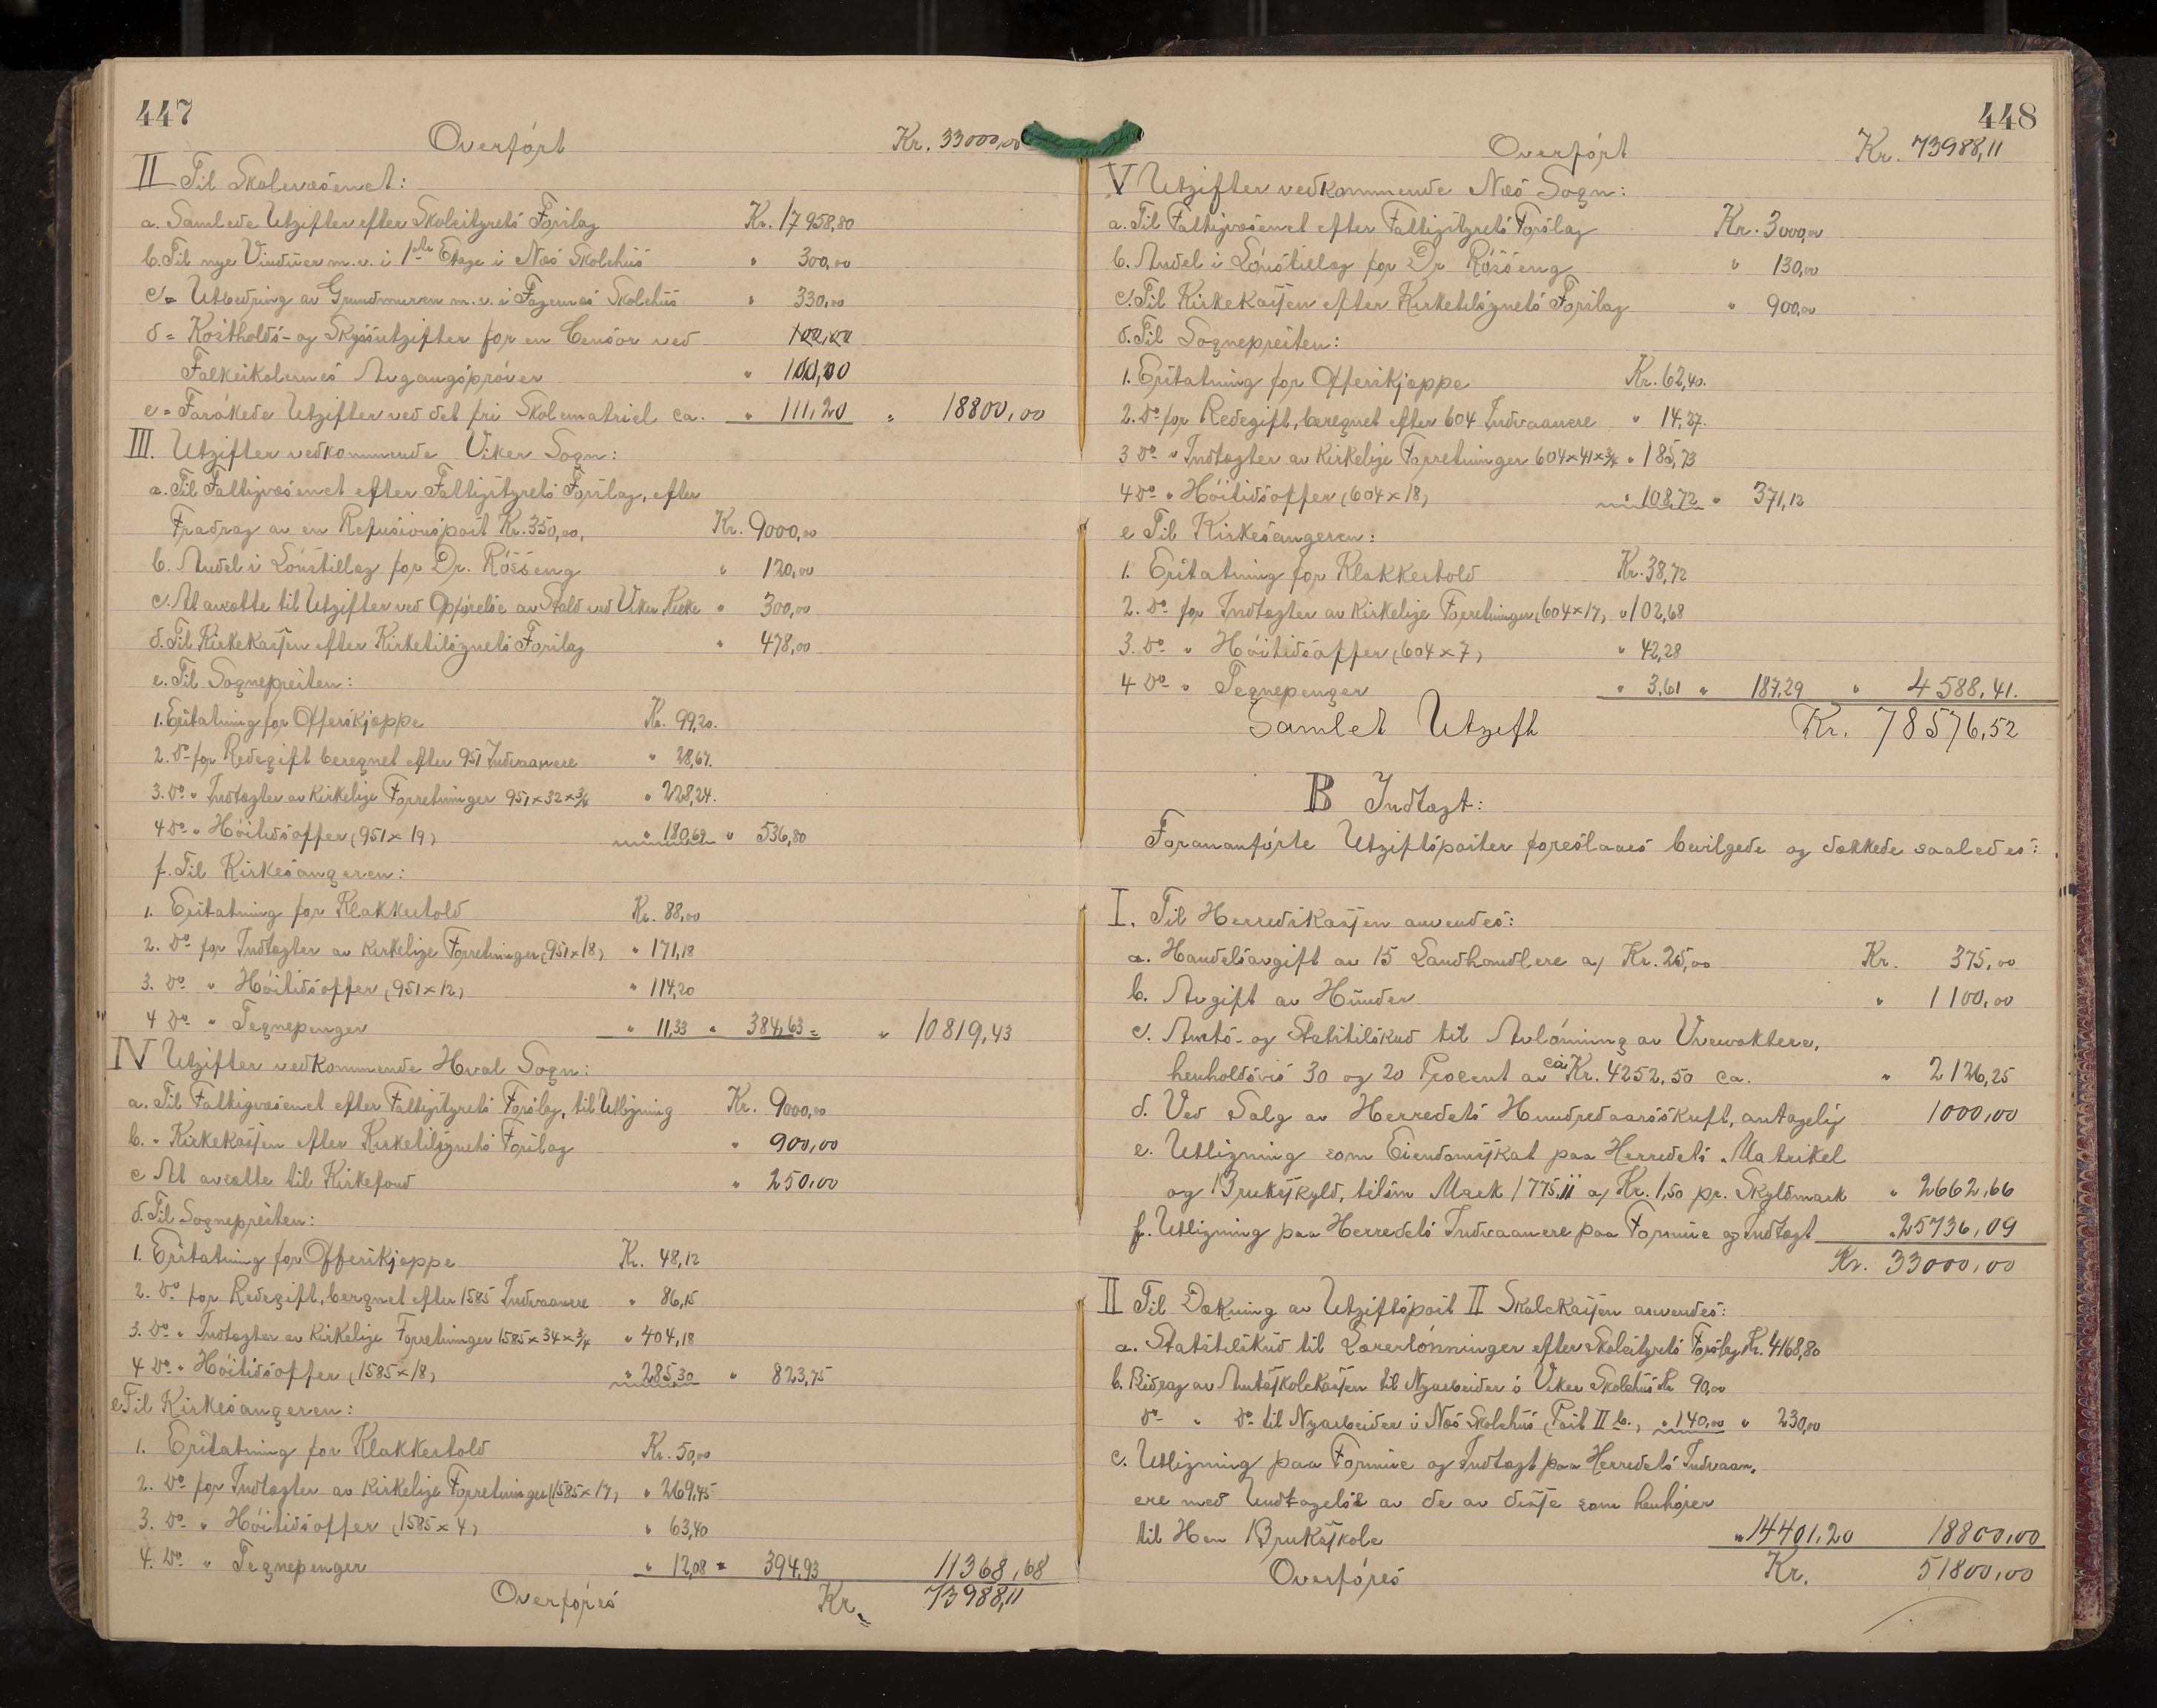 447
Overført Kr. 33000,00
II Til Skolevæsenet:
a. Samlede Utgifter efter Skolestyrets Forslag Kr. 17958,80
b. Til nye Vinduer m.v. i 1ste Etage i Næs Skolehus " 300,00
c = Utbedring av Grundmuren m.v. i Fagernæs Skolehus " 330,00
d = Kostholds- og Skydsutgifter for en Censor ved
Folkeskolernes Avgangsprøver " 100,00
e = Forøkede Utgifter ved det fri Skolematriel ca. " 111,20 " 18800,00
III. Utgifter vedkommende Viker Sogn:
a. Til Fattigvæsenet efter Fattigstyrets Forslag, efter
Fradrag av en Refusionspost Kr. 350,00, Kr. 9000,00
b. Andel i Lønstillæg for Dr. Røsseng " 120,00
c. At avsætte til Utgifter ved Opførelse av Stald ved Viker Kirke " 300,00
d. Til Kirkekassen efter Kirketilsynets Forslag " 478,00
e. Til Sognepresten:
1. Erstatning for Offerskjæppe Kr. 99,20.
2. Do for Redegift beregnet efter 951 Indvaanere " 28,67.
3. Do " Indtægter av Kirkelige Forretninger 951 × 32 × 3/4 " 228,24.
4 Do " Høitidsoffer (951 × 19) " 180,69 " 536,80
f. Til Kirkesangeren:
1. Erstatning for Klokkertold Kr. 88,00
2. Do for Indtægter av Kirkelige Forretninger (951 × 18) " 171,18
3. Do " Høitidsoffer (951 × 12) " 114,20
4 Do " Tegnepenger " 11,33 " 384,63 = " 10819,43
IV Utgifter vedkommende Hval Sogn:
a. Til Fattigvæsenet efter Fattigstyrets Forslag, til Utligning Kr. 9000,00
b. " Kirkekassen efter Kirketilsynets Forslag " 900,00
c At avsætte til Kirkefond " 250,00
d. Til Sognepresten:
1. Erstatning for Offerskjæppe Kr. 48,12
2. Do for Redegift, beregnet efter 1585 Indvaanere " 86,15
3. Do " Indtægter av Kirkelige Forretninger 1585 × 34 × 3/4 " 404,18
4 Do " Høitidsoffer (1585 × 18) " 285,30 " 823,75
e Til Kirkesangeren:
1. Erstatning for Klokkertold Kr. 50,00
2. Do for Indtægter av Kirkelige Forretninger (1585 × 17) " 269,45
3. Do " Høitidsoffer (1585 × 4) " 63,40
4. Do " Tegnepenger " 12,08 = 394,93 11368,68
Overføres Kr. 73988,11
448
Overført Kr. 73988,11
V Utgifter vedkommende Næs Sogn:
a. Til Fattigvæsenet efter Fattigstyrets Forslag Kr. 3000,00
b. Andel i Lønstillæg for Dr Røsseng " 130,00
c. Til Kirkekassen efter Kirketilsynets Forslag " 900,00
d. Til Sognepresten:
1. Erstatning for Offerskjæppe Kr. 62,40.
2. Do for Redegift, beregnet efter 604 Indvaanere " 14,27.
3 Do " Indtægter av Kirkelige Forretninger 604 × 41 × 3/4 " 185,73
4 Do " Høitidsoffer (604 × 18) " 108,72 " 371,12
e Til Kirkesangeren:
1. Erstatning for Klokkertold Kr. 38,72
2. Do for Indtægter av Kirkelige Forretninger (604 × 17) " 102,68
3. Do " Høitidsoffer (604 × 7) " 42,28
4 Do " Tegnepenger " 3,61 " 187,29 " 4588,41.
Samlet Utgift Kr. 78576,52
B Indtægt:
Forananførte Utgiftsposter foreslaaes bevilgede og dækkede saaledes:
I. Til Herredskassen anvendes:
a. Handelsavgift av 15 Landhandlere a/ Kr. 25,00 Kr. 375,00
b. Avgift av Hunder " 1100,00
c. Amts- og Statstilskud til Avlønning av Vrewoktere,
henholdsvis 30 og 20 Procent av ca Kr. 4252,50 ca. " 2126,25
d. Ved Salg av Herredets Hundredaarsskrift, antagelig 1000,00
e. Utligning som Eiendomsskat paa Herredets Matrikel
og Bruksskyld, tilsm Mark 1775,11 a/ Kr. 1,50 pr. Skyldmark " 2662,66
f. Utligning paa Herredets Indvaanere paa Formue og Indtægt " 25736,09
Kr. 33000,00
II Til Dækning av Utgiftspost II Skolekassen anvendes:
a. Statstilskud til Lærerlønninger efter Skolestyrets Forslag Kr. 4168,80
b. Bidrag av Amtsskolekassen til Nyarbeider i Viker Skolehus Kr 90,00
Do " Do til Nyarbeider i Næs Skolehus (Post II b.) " 140,00 " 230,00
c. Utligning paa Formue og Indtægt paa Herredets Indvaan-
ere med Undtagelse av de av disse som henhører
til Hen Bruksskole " 14401,20 18800,00
Overføres Kr. 51800,00